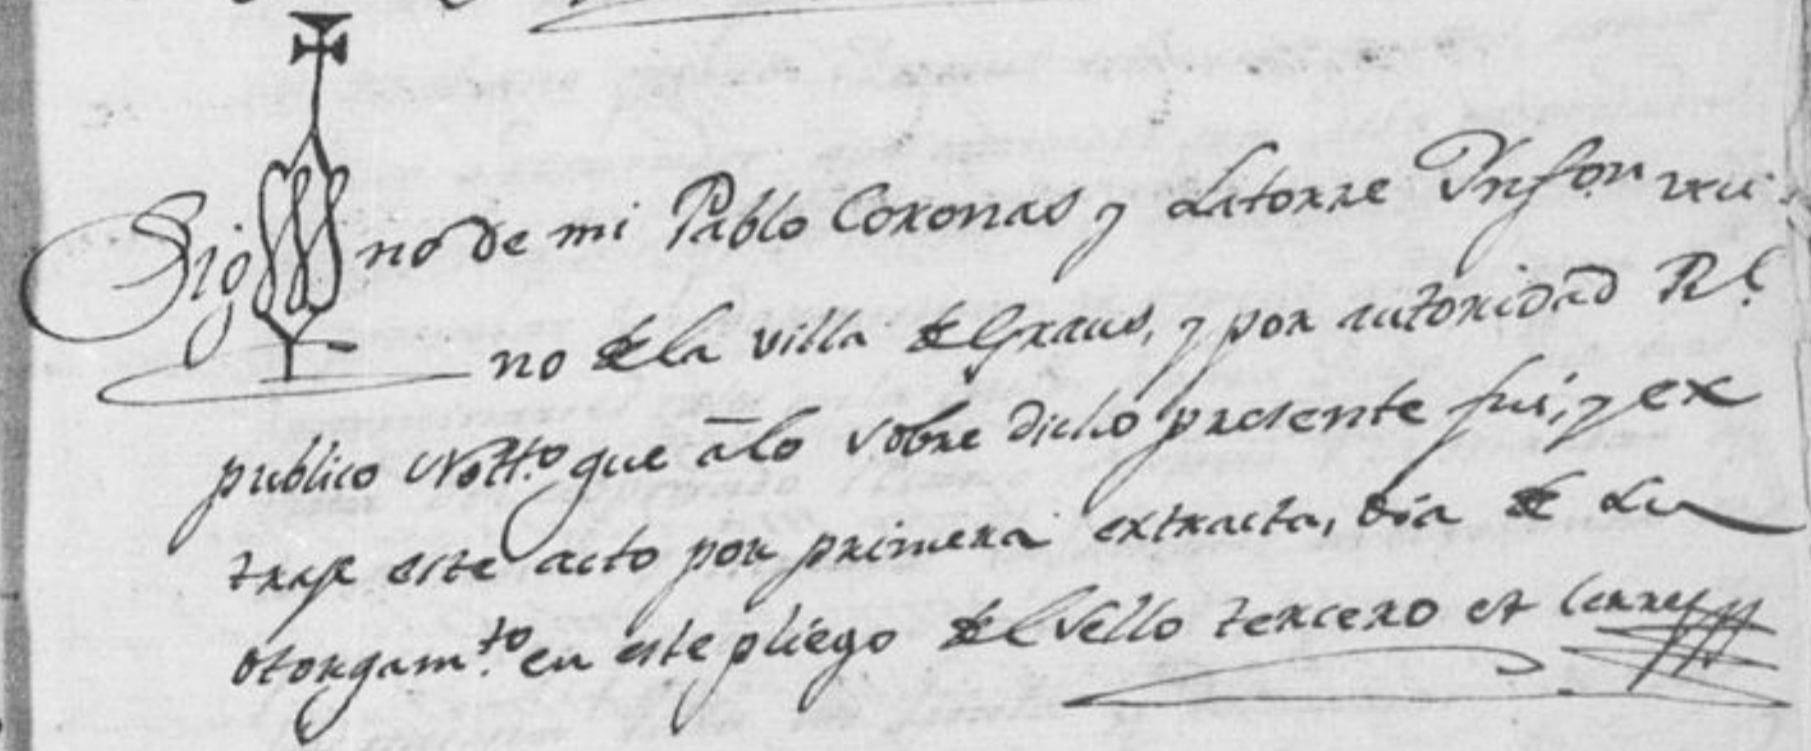 Sig no de mi Pablo Coronas y Latorre Ynfon veci
no de la villa de Graus, y por autoridad Rl.
publico Nott.o que a lo sobre dicho presente fui, y ex
traje este acto por primera extracta, dia de su
otorgam.to en este pliego del sello tercero et cerre